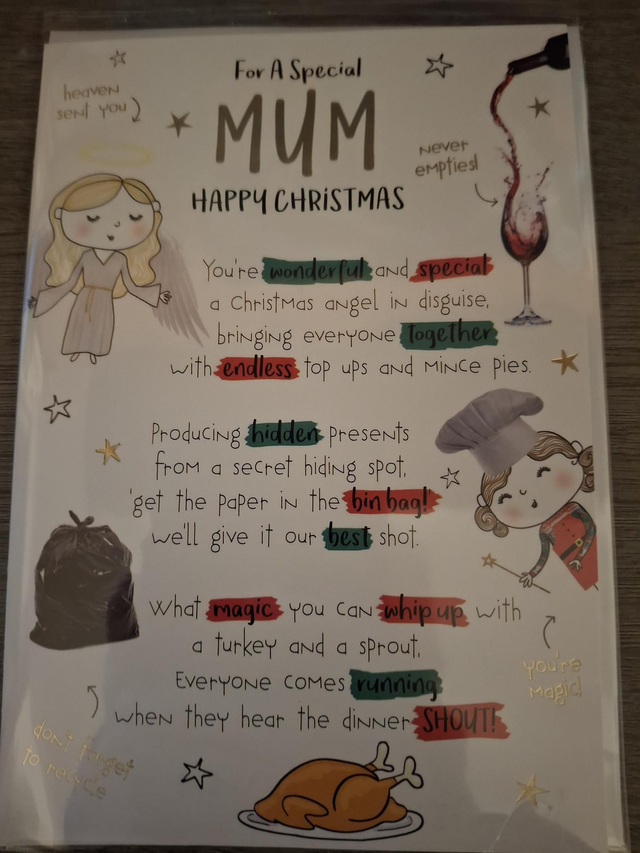 For A Special
heaven
sent you
MUM
never
empties!
HAPPY CHRISTMAS
You're wonderful and special
a Christmas angel in disguise,
bringing everyone together
with endless top ups and mince pies.
Producing hidden presents
from a secret hiding spot,
'get the paper in the bin bag!
we'll give it our best shot.
What magic you can whip up with
a turkey and a sprout,
Everyone comes running
when they hear the dinner SHOUT!
you're
magic!
don't forget
to recycle